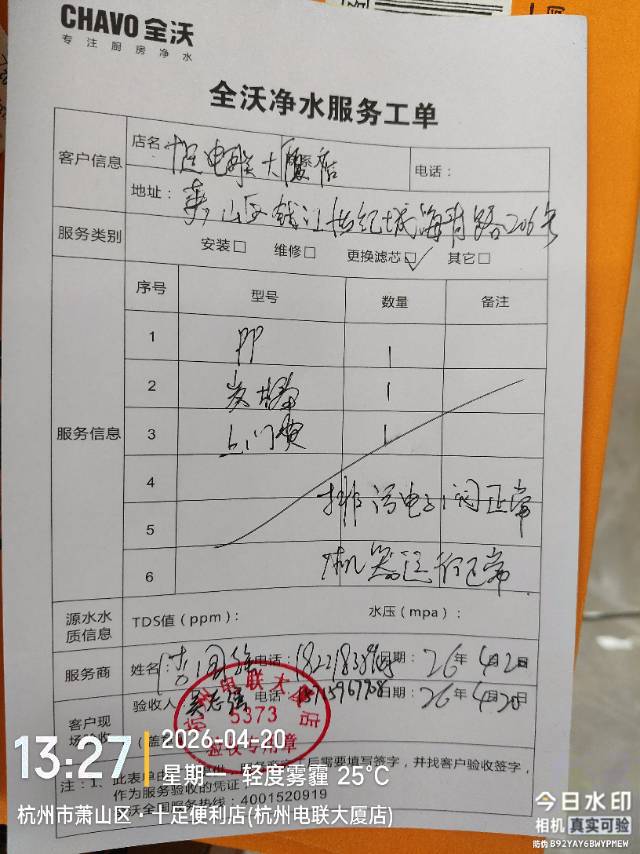 CHAVO 全沃
专注厨房净水
全沃净水服务工单
客户信息
店名: 十足电联大厦店
电话:
地址: 萧山区钱江世纪城海青路206号
服务类别 安装□ 维修□ 更换滤芯☑ 其它□
服务信息
序号 型号 数量 备注
1 PP 1
2 炭棒 1
3 上门费 1
4
排污电子阀正常
5
6 机器运行正常
源水水质信息 TDS值(ppm): 水压(mpa):
服务商 姓名 电话: 日期: 26年4月20日
客户现场验收 验收人 吴志强 日期: 26年4月20日
电联大
5373
验收专用章
注:1、此表单
后需要填写签字,并找客户验收签字,
作为服务验收的凭证
沃全国服务热线:4001520919
13:27 2026-04-20
星期一 轻度雾霾 25°C
杭州市萧山区·十足便利店(杭州电联大厦店)
今日水印
相机 真实可验
防伪 B92YAY6BWYPMEW